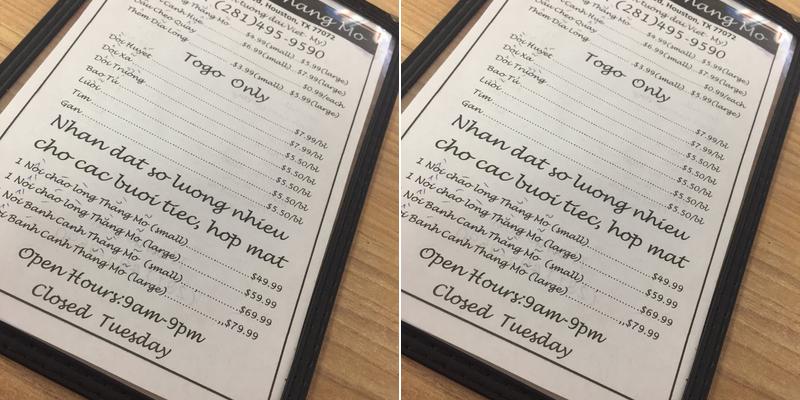 Thang Mo
Houston, TX 77072
(281)495-9590
$4.99(small) $5.99(large)
Dầu Cheo Quẩy $6.99(small) $7.99(large)
$0.99/each
Thêm Dĩa Lòng $3.99(small) $5.99(large)
Togo Only
Dồi Huyết $7.99/bl
Dồi Xả $7.99/bl
Dồi Trường $5.50/bl
Bao Tử $5.50/bl
Lưỡi $5.50/bl
Tim $5.50/bl
Gan $5.50/bl
Nhan dat so luong nhieu
cho cac buoi tiec, hop mat
1 Nồi cháo lòng Thằng Mõ (small) $49.99
1 Nồi cháo lòng Thằng Mõ (large) $59.99
Nồi Bánh Canh Thằng Mõ (small) $69.99
Bánh Canh Thằng Mõ (large) $79.99
Open Hours:9am-9pm
Closed Tuesday
Thang Mo
Houston, TX 77072
(281)495-9590
$4.99(small) $5.99(large)
Dầu Cheo Quẩy $6.99(small) $7.99(large)
$0.99/each
Thêm Dĩa Lòng $3.99(small) $5.99(large)
Togo Only
Dồi Huyết $7.99/bl
Dồi Xả $7.99/bl
Dồi Trường $5.50/bl
Bao Tử $5.50/bl
Lưỡi $5.50/bl
Tim $5.50/bl
Gan $5.50/bl
Nhan dat so luong nhieu
cho cac buoi tiec, hop mat
1 Nồi cháo lòng Thằng Mõ (small) $49.99
1 Nồi cháo lòng Thằng Mõ (large) $59.99
Nồi Bánh Canh Thằng Mõ (small) $69.99
Bánh Canh Thằng Mõ (large) $79.99
Open Hours:9am-9pm
Closed Tuesday